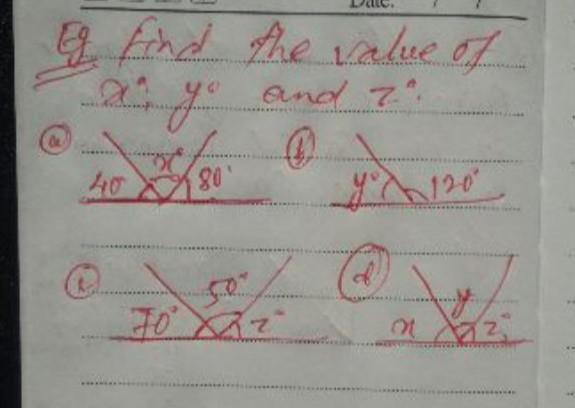 Date: / /
Eg Find the value of
x°, y° and z°.
(a) 40 x° 80°
(b) y° 120°
(c) 70° 50° z°
(d) x y z°